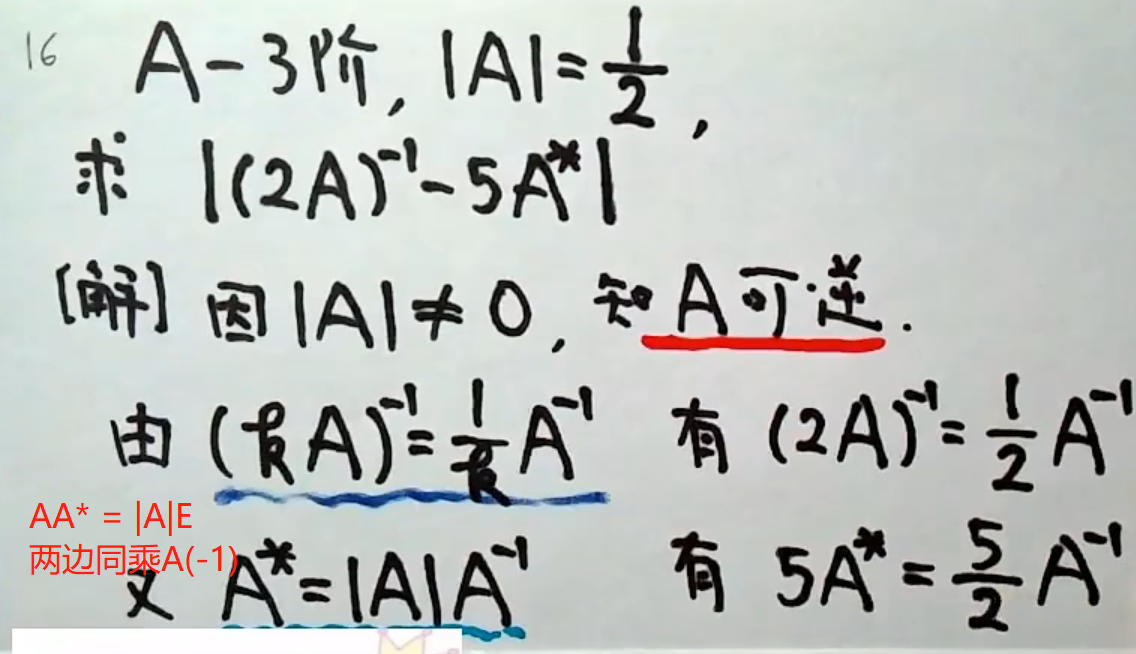 16 A-3阶, |A|=1/2,
求 |(2A)⁻¹-5A*|
[解] 因|A|≠0, 知A可逆.
由 (kA)⁻¹=1/k A⁻¹ 有 (2A)⁻¹=1/2 A⁻¹
AA* = |A|E
两边同乘A(-1)
又 A*=|A|A⁻¹ 有 5A*=5/2 A⁻¹